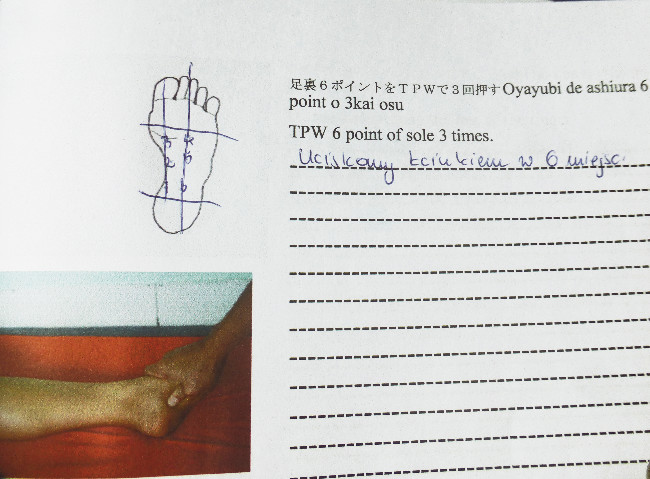 足裏６ポイントをＴＰＷで３回押すOyayubi de ashiura 6
point o 3kai osu
TPW 6 point of sole 3 times.
Uciskamy kciukiem w 6 miejsc.